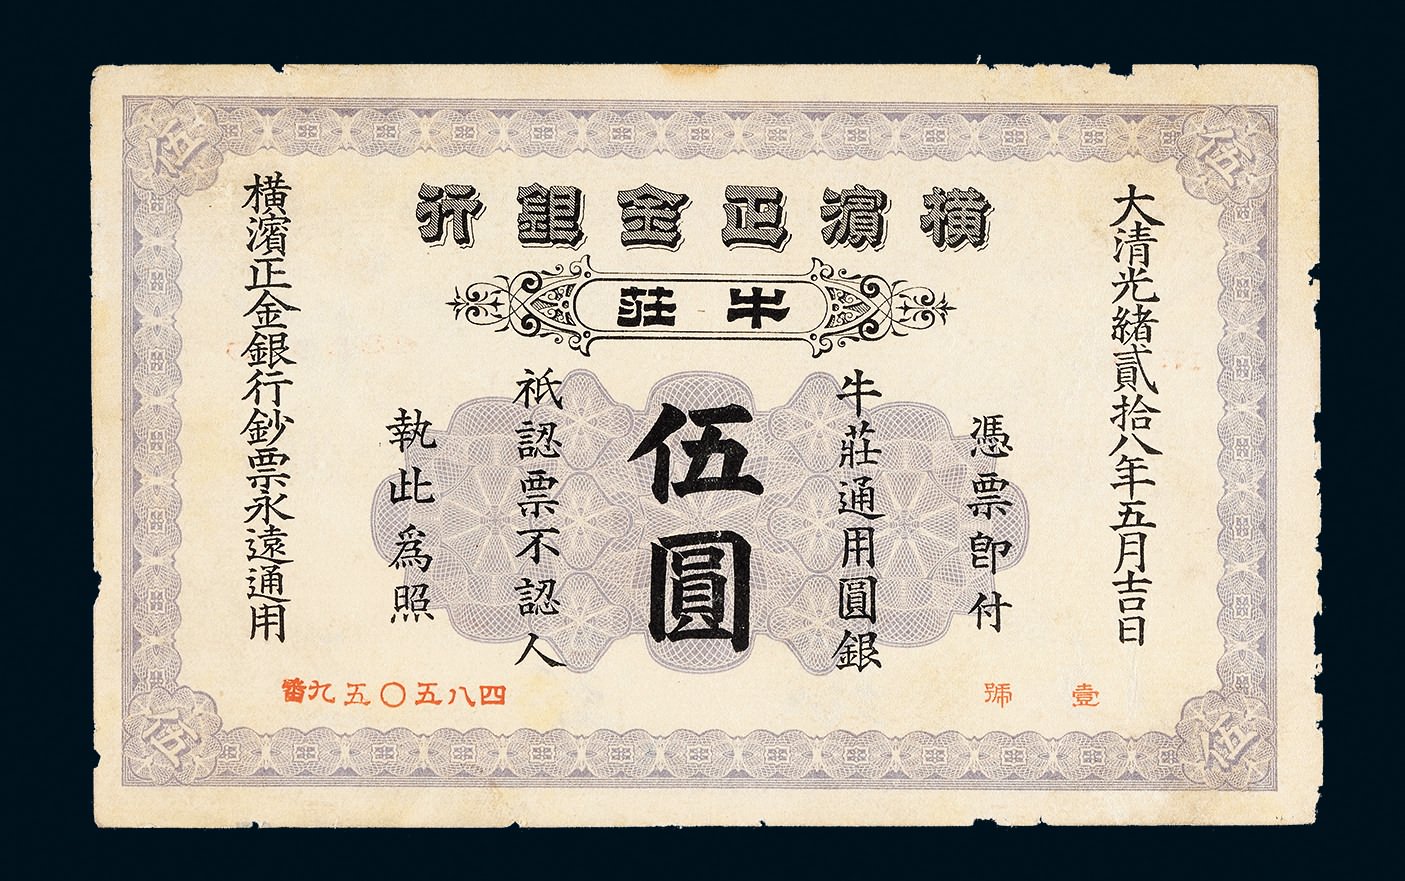 橫濱正金銀行
牛莊
大清光緒貳拾八年五月吉日
憑票卽付
牛莊通用圓銀
伍圓
祇認票不認人
執此為照
橫濱正金銀行鈔票永遠通用
壹號
四八五〇五九番
伍
伍
伍
伍